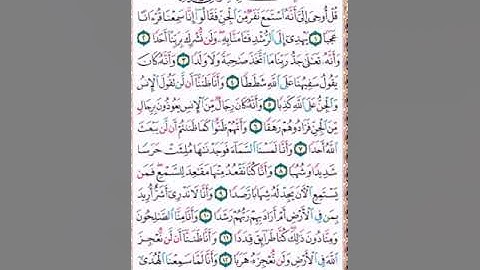 قُلْ أُوحِىَ إِلَىَّ أَنَّهُ ٱسْتَمَعَ نَفَرٌ مِّنَ ٱلْجِنِّ فَقَالُوٓا۟ إِنَّا سَمِعْنَا قُرْءَانًا
عَجَبًا ١ يَهْدِىٓ إِلَى ٱلرُّشْدِ فَـَٔامَنَّا بِهِۦ وَلَن نُّشْرِكَ بِرَبِّنَآ أَحَدًا ٢
وَأَنَّهُۥ تَعَـٰلَىٰ جَدُّ رَبِّنَا مَا ٱتَّخَذَ صَـٰحِبَةً وَلَا وَلَدًا ٣ وَأَنَّهُۥ كَانَ
يَقُولُ سَفِيهُنَا عَلَى ٱللَّهِ شَطَطًا ٤ وَأَنَّا ظَنَنَّآ أَن لَّن تَقُولَ ٱلْإِنسُ
وَٱلْجِنُّ عَلَى ٱللَّهِ كَذِبًا ٥ وَأَنَّهُۥ كَانَ رِجَالٌ مِّنَ ٱلْإِنسِ يَعُوذُونَ بِرِجَالٍ
مِّنَ ٱلْجِنِّ فَزَادُوهُمْ رَهَقًا ٦ وَأَنَّهُمْ ظَنُّوا۟ كَمَا ظَنَنتُمْ أَن لَّن يَبْعَثَ
ٱللَّهُ أَحَدًا ٧ وَأَنَّا لَمَسْنَا ٱلسَّمَآءَ فَوَجَدْنَـٰهَا مُلِئَتْ حَرَسًا
شَدِيدًا وَشُهُبًا ٨ وَأَنَّا كُنَّا نَقْعُدُ مِنْهَا مَقَـٰعِدَ لِلسَّمْعِ فَمَن
يَسْتَمِعِ ٱلْـَٔانَ يَجِدْ لَهُۥ شِهَابًا رَّصَدًا ٩ وَأَنَّا لَا نَدْرِىٓ أَشَرٌّ أُرِيدَ
بِمَن فِى ٱلْأَرْضِ أَمْ أَرَادَ بِهِمْ رَبُّهُمْ رَشَدًا ١٠ وَأَنَّا مِنَّا ٱلصَّـٰلِحُونَ
وَمِنَّا دُونَ ذَٰلِكَ كُنَّا طَرَآئِقَ قِدَدًا ١١ وَأَنَّا ظَنَنَّآ أَن لَّن نُّعْجِزَ
ٱللَّهَ فِى ٱلْأَرْضِ وَلَن نُّعْجِزَهُۥ هَرَبًا ١٢ وَأَنَّا لَمَّا سَمِعْنَا ٱلْهُدَىٰٓ